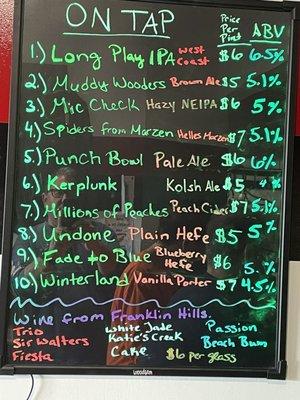 ON TAP Price Per Pint ABV
1.) Long Play IPA West Coast $6 6.5%
2.) Muddy Wooders Brown Ale $5 5.1%
3.) Mic Check Hazy NEIPA $6 5%
4.) Spiders from Marzen Helles Marzen $7 5.1%
5.) Punch Bowl Pale Ale $6 6%
6.) Kerplunk Kolsh Ale $5 4%
7.) Millions of Peaches Peach Cider $7 5.1%
8.) Undone Plain Hefe $5 5%
9.) Fade to Blue Blueberry Hefe $6 5.%
10.) Winterland Vanilla Porter $7 4.5%
Wine from Franklin Hills.
Trio White Jade Passion
Sir Walters Katie's Creek Beach Bum
Fiesta Cake $6 per glass